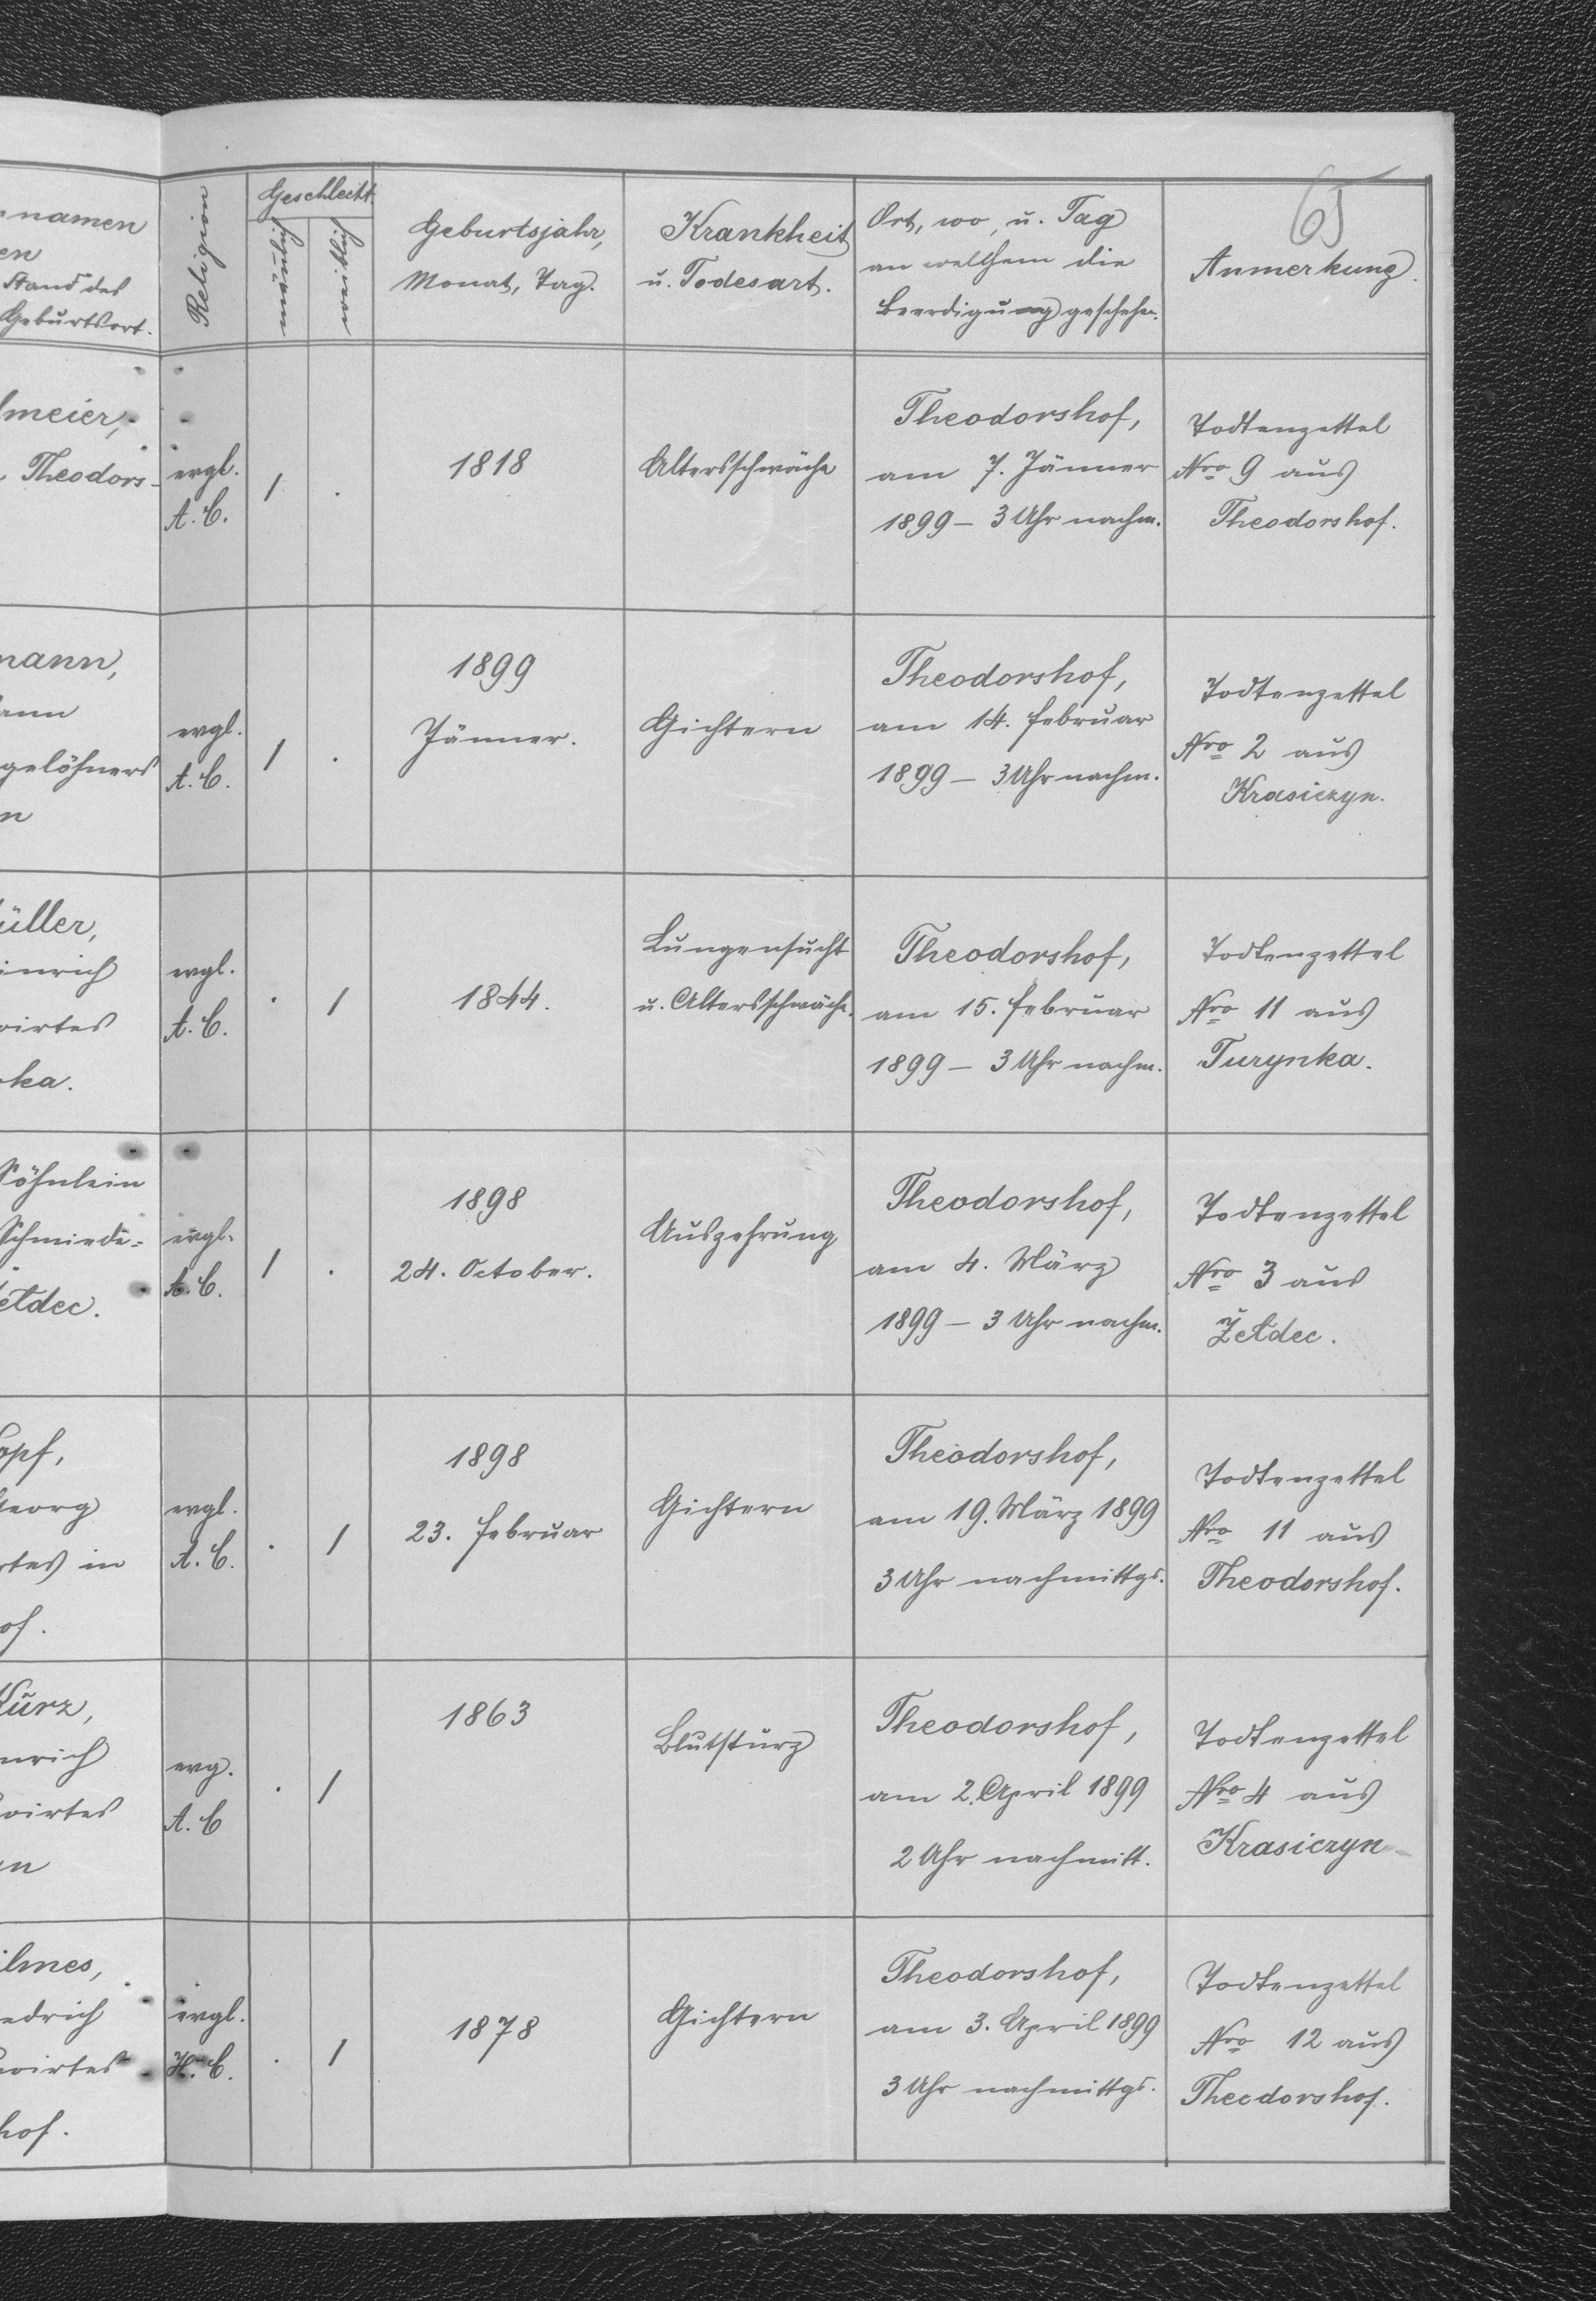 65
namen
en
Stand des
Geburtsort.
Religion
Geschlecht.
männlich
weiblich
Geburtsjahr,
Monat, Tag.
Krankheit
u. Todesart.
Ort, wo, u. Tag
an welchem die
Beerdigung geschehen.
Anmerkung.
lmeier,
Theodors-
evgl.
A. C.
1
.
1818
Altersschwäche
Theodorshof,
am 7. Jänner
1899 – 3 Uhr nachm.
Todtenzettel
Nro 9 aus
Theodorshof.
mann,
ann
gelöhners
n
evgl.
A. C.
1
.
1899
Jänner.
Gichtern
Theodorshof,
am 14. Februar
1899 – 3 Uhr nachm.
Todtenzettel
Nro 2 aus
Krasiczyn.
üller,
inrich
wirtes
ka.
evgl.
A. C.
.
1
1844.
Lungensucht
u. Altersschwäche.
Theodorshof,
am 15. Februar
1899 – 3 Uhr nachm.
Todtenzettel
Nro 11 aus
Turynka.
Söhnlein
Schmiede-
etdec.
evgl.
A. C.
1
.
1898
24. October.
Auszehrung
Theodorshof,
am 4. März
1899 – 3 Uhr nachm.
Todtenzettel
Nro 3 aus
Żełdec.
opf,
Georg
rtes in
of.
evgl.
A. C.
.
1
1898
23. Februar
Gichtern
Theodorshof,
am 19. März 1899
3 Uhr nachmittgs.
Todtenzettel
Nro 11 aus
Theodorshof.
Kurz,
nrich
wirtes
n
evg.
A. C
.
1
1863
Blutsturz
Theodorshof,
am 2. April 1899
2 Uhr nachmitt.
Todtenzettel
Nro 4 aus
Krasiczyn
ilmes,
edrich
wirtes
hof.
evgl.
H. C.
.
1
1878
Gichtern
Theodorshof,
am 3. April 1899
3 Uhr nachmittgs.
Todtenzettel
Nro 12 aus
Theodorshof.